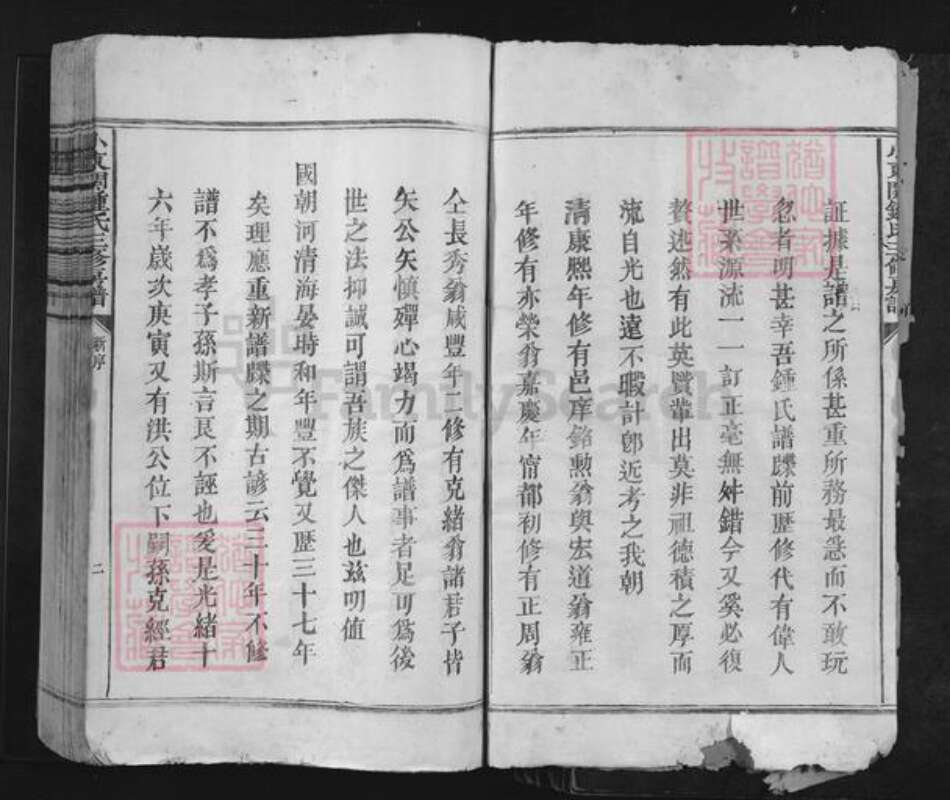 証據是譜之所係甚重所務最急而不敢玩
忽者明甚幸吾鍾氏譜牒前歷修代有偉人
世系源流一一訂正毫無舛錯今又奚必復
贅述然有此英賢輩出莫非祖德積之厚而
流自光也遠不暇計卽近考之我朝
清康熙年修有邑庠銘勲翁與宏道翁雍正
年修有亦榮翁嘉慶年甯都初修有正周翁
仝長秀翁咸豐年二修有克緒翁諸君子皆
矢公矢慎殫心竭力而爲譜事者足可爲後
世之法抑誠可謂吾族之傑人也兹明值
國朝河清海晏時和年豐不覺又歷三十七年
矣理應重新譜牒之期古諺云三十年不修
譜不爲孝子孫斯言良不誣也爰是光緒十
六年歲次庚寅又有洪公位下嗣孫克經君
鍾氏三修
新序
二
FamilySearch